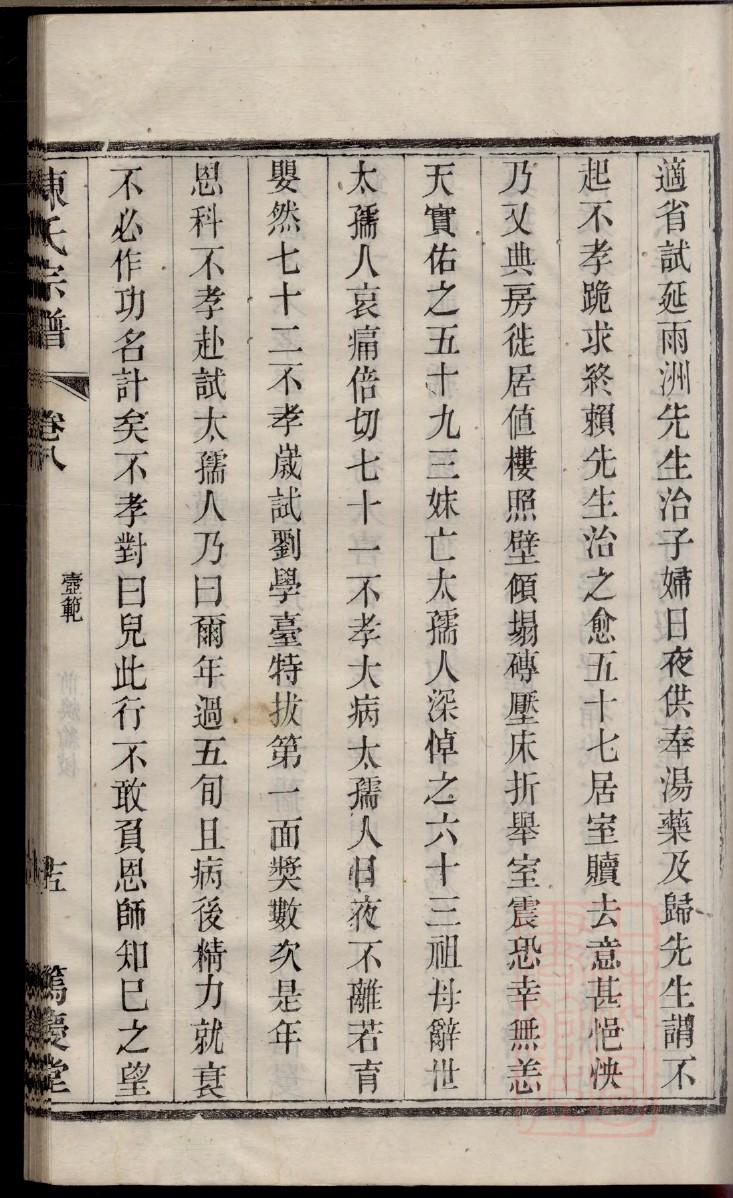 適省試延雨洲先生治子婦日夜供奉湯藥及歸先生謂不
起不孝跪求終賴先生治之愈五十七居室贖去意甚悒怏
乃又典房徙居值樓照壁傾塌磚壓床折舉室震恐幸無恙
天實佑之五十九三妹亡太孺人深悼之六十三祖母辭世
太孺人哀痛倍切七十一不孝大病太孺人日夜不離若育
嬰然七十二不孝歲試劉學臺特拔第一面獎數次是年
恩科不孝赴試太孺人乃曰爾年過五旬且病後精力就衰
不必作功名計矣不孝對曰兒此行不敢負恩師知巳之望
陳氏宗譜 卷八 壼範 十五 篤慶堂